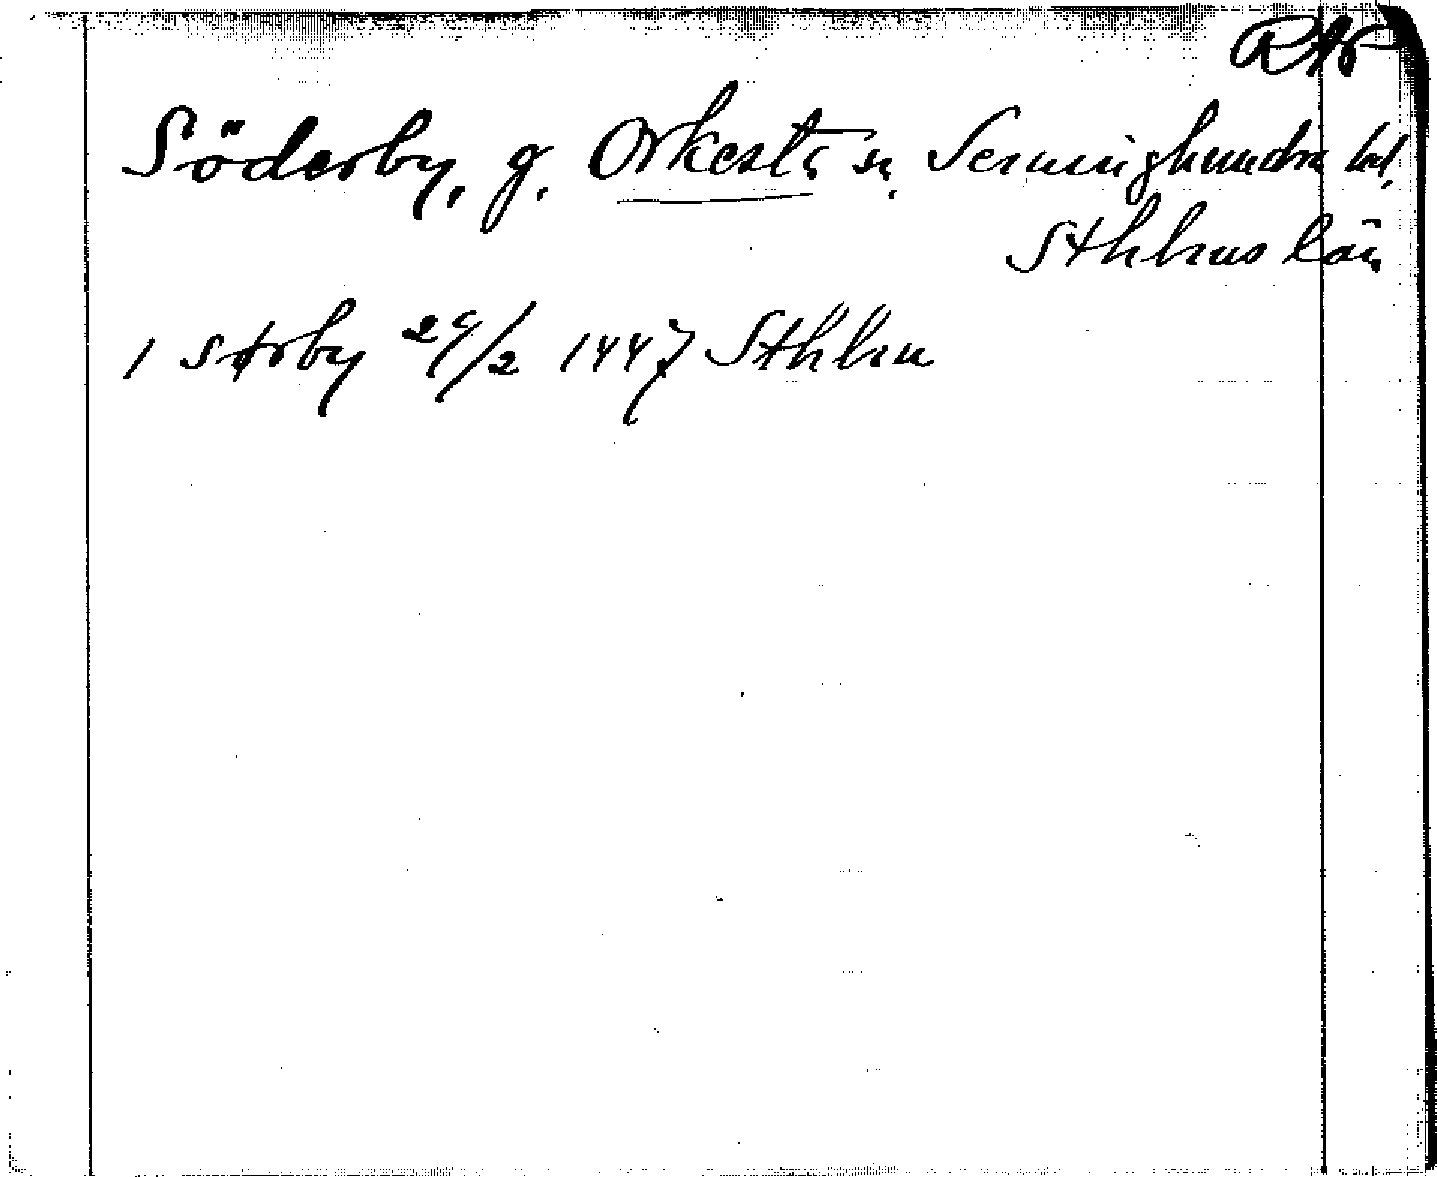 RAp
Söderby, g. Orkesta sn, Seminghundra hd,
Sthlms län
i Sørby 29/2 1447 Sthlm